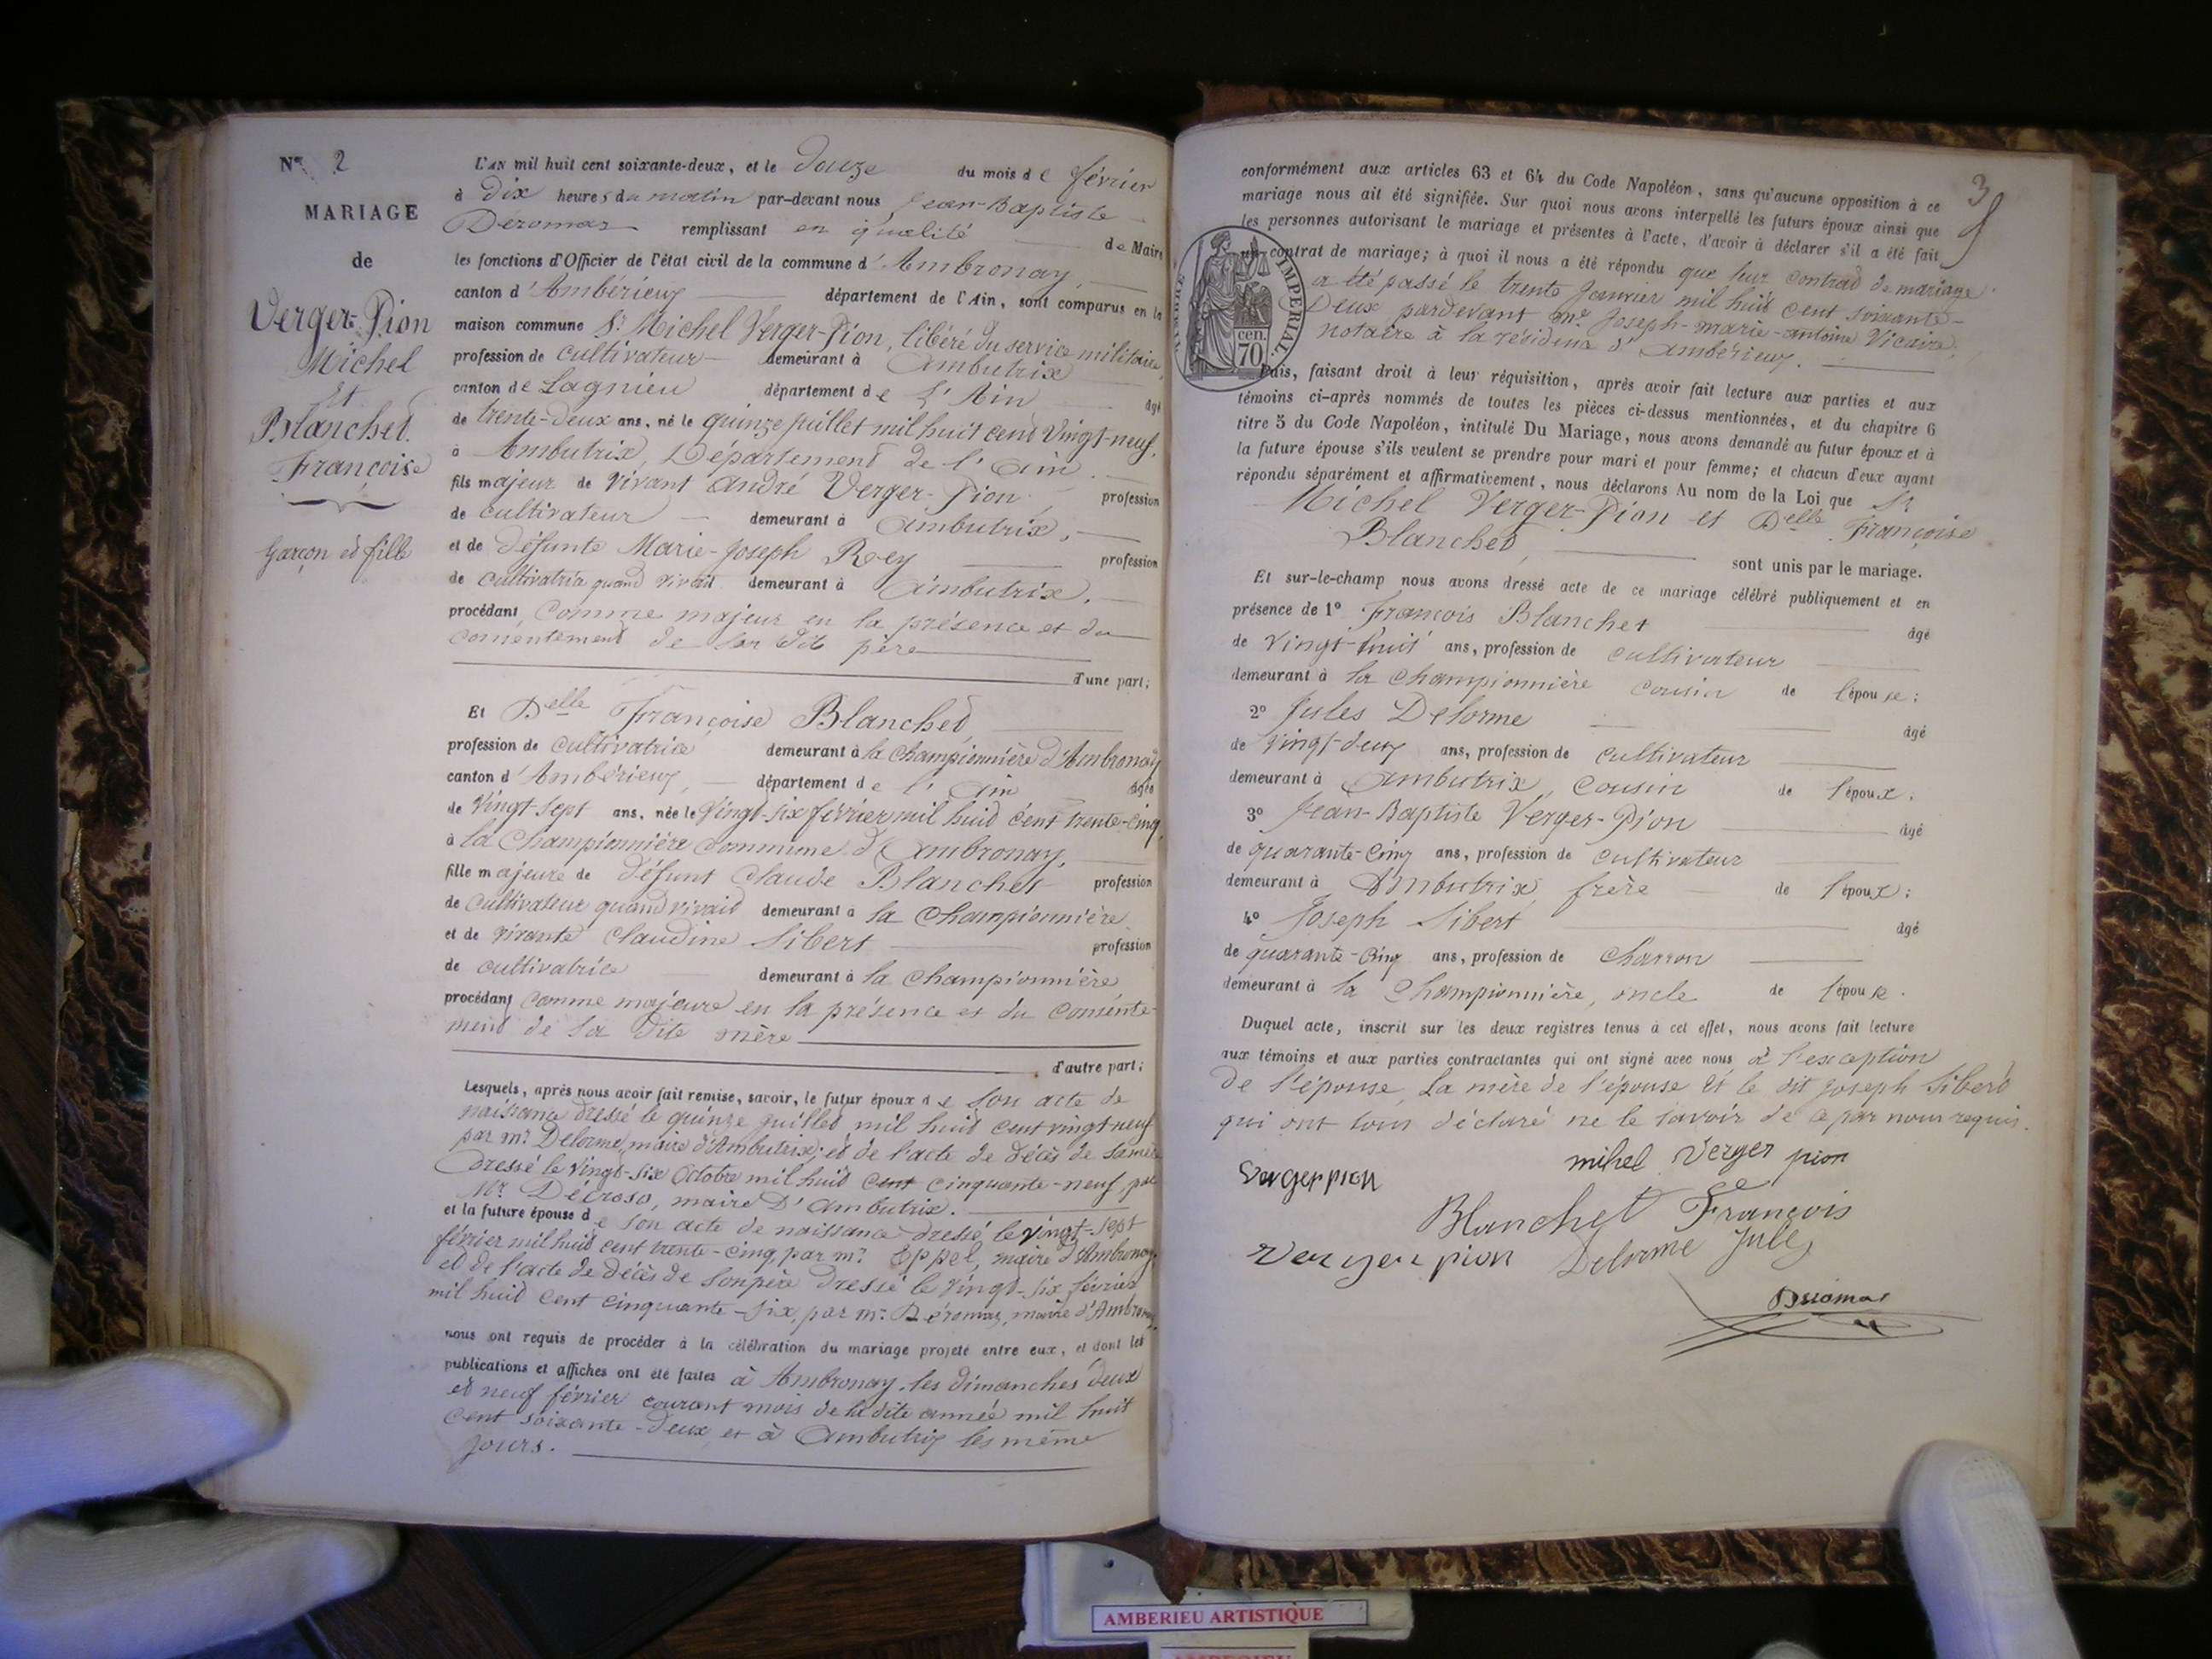 N° 2
MARIAGE
de
Verger-Pion
Michel
et
Blanchet
Françoise
Garçon et fille
L'AN mil huit cent soixante-deux, et le douze du mois de février
à dix heures du matin par-devant nous Jean-Baptiste
Deromas remplissant en qualité de Maire
les fonctions d'Officier de l'état civil de la commune d'Ambronay,
canton d'Ambérieux département de l'Ain, sont comparus en la
maison commune Sr Michel Verger-Pion, libéré du service militaire,
profession de cultivateur demeurant à Ambutrix
canton de Lagnieu département de l'Ain âgé
de trente-deux ans, né le quinze juillet mil huit cent vingt-neuf,
à Ambutrix, Département de l'Ain
fils majeur de vivant André Verger-Pion profession
de cultivateur demeurant à Ambutrix,
et de défunte Marie-Joseph Rey profession
de cultivatrice quand vivait demeurant à Ambutrix,
procédant comme majeur en la présence et du
consentement de son dit père
d'une part;
Et Delle Françoise Blanchet,
profession de cultivatrice demeurant à la Championnière d'Ambronay
canton d'Ambérieux, département de l'Ain âgée
de vingt-sept ans, née le vingt-six février mil huit cent trente-cinq,
à la Championnière commune d'Ambronay,
fille majeure de défunt Claude Blanchet profession
de cultivateur quand vivait demeurant à la Championnière
et de vivante Claudine Sibert profession
de cultivatrice demeurant à la Championnière
procédant comme majeure en la présence et du consente-
ment de sa dite mère
d'autre part;
Lesquels, après nous avoir fait remise, savoir, le futur époux de son acte de
naissance dressé le quinze juillet mil huit cent vingt neuf
par mr Delorme, maire d'Ambutrix; et de l'acte de décès de sa mère
dressé le vingt-six Octobre mil huit cent cinquante-neuf par
Mr Décroso, maire D'Ambutrix.
et la future épouse de son acte de naissance dressé le vingt-sept
février mil huit cent trente-cinq par mr Eppel, maire d'Ambronay
et de l'acte de décès de son père dressé le vingt-six février
mil huit cent cinquante-six, par mr Déromas, maire d'Ambronay,
nous ont requis de procéder à la célébration du mariage projeté entre eux, et dont les
publications et affiches ont été faites à Ambronay, les dimanches deux
et neuf février courant mois de la dite année mil huit
cent soixante-deux et à Ambutrix les même
jours.
3
conformément aux articles 63 et 64 du Code Napoléon, sans qu'aucune opposition à ce
mariage nous ait été signifiée. Sur quoi nous avons interpellé les futurs époux ainsi que
les personnes autorisant le mariage et présentes à l'acte, d'avoir à déclarer s'il a été fait
un contrat de mariage; à quoi il nous a été répondu que leur contrat de mariage
a été passé le trente Janvier mil huit cent soixante-
Deux pardevant me Joseph-marie-antoine Vicaire,
notaire à la résidence d'Ambérieux.
TIMBRE IMPERIAL.
70 cen.
Puis, faisant droit à leur réquisition, après avoir fait lecture aux parties et aux
témoins ci-après nommés de toutes les pièces ci-dessus mentionnées, et du chapitre 6
titre 5 du Code Napoléon, intitulé Du Mariage, nous avons demandé au futur époux et à
la future épouse s'ils veulent se prendre pour mari et pour femme; et chacun d'eux ayant
répondu séparément et affirmativement, nous déclarons Au nom de la Loi que Sr
Michel Verger-Pion et Delle Françoise
Blanchet, sont unis par le mariage.
Et sur-le-champ nous avons dressé acte de ce mariage célébré publiquement et en
présence de 1° François Blanchet âgé
de vingt-huit ans, profession de cultivateur
demeurant à la Championnière cousin de l'épouse;
2° Jules Delorme âgé
de vingt-deux ans, profession de cultivateur
demeurant à Ambutrix, Cousin de l'époux;
3° Jean-Baptiste Verger-Pion âgé
de quarante-cinq ans, profession de cultivateur
demeurant à Ambutrix, frère de l'époux;
4° Joseph Sibert âgé
de quarante-cinq ans, profession de Charron
demeurant à la Championnière, oncle de l'épouse.
Duquel acte, inscrit sur les deux registres tenus à cet effet, nous avons fait lecture
aux témoins et aux parties contractantes qui ont signé avec nous à l'exception
de l'épouse, la mère de l'épouse et le dit Joseph Sibert
qui ont tous déclaré ne le savoir de ce par nous requis.
mihel verger pion
Vergerpion
Blanchet François
Verger pion Delorme Jules
Deromas
AMBERIEU ARTISTIQUE